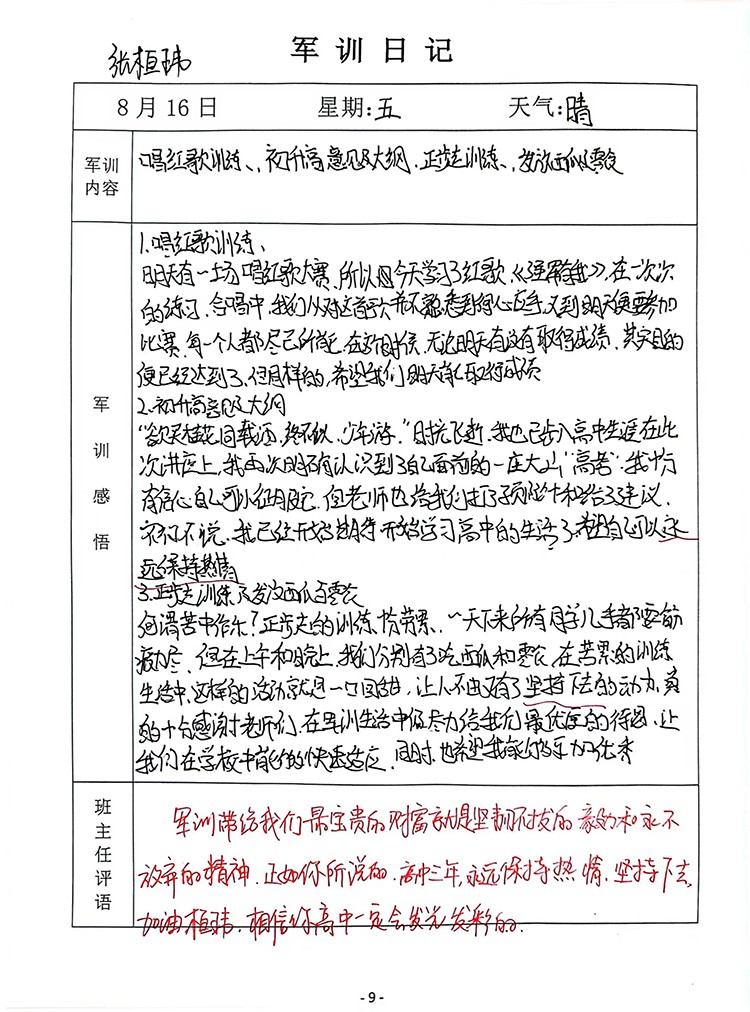 军训日记
张桓玮
8月16日 星期:五 天气:晴
军训内容
唱红歌训练、初升高意见及大纲、正步走训练、发放西瓜及零食
军训感悟
1.唱红歌训练、
明天有一场唱红歌大赛、所以今天学习了红歌,《强军有我》,在一次次
的练习、合唱中,我们从对这首歌并不熟悉到得心应手,又到明天便要参加
比赛,每一个人都尽己所能,在这个时候,无论明天有没有取得成绩,其实目的
便已经达到了,但同样的,希望我们明天能取得成绩
2.初升高意见及大纲
“欲买桂花同载酒,终不似、少年游。”时光飞逝,我也已步入高中生涯在此
次讲座上,我再次明确认识到了自己面前的一座大山“高考”.我十分
有信心自己可以征服它,但老师也给我们打了预防针和给了建议,
不得不说,我已经开始期待开始学习高中的生活了,希望自己可以永
远保持热情
3.正步走训练及发放西瓜与零食
何谓苦中作乐?正步走的训练,苦累、一天下来所有同学几乎都要筋
疲力尽,但在上午和晚上,我们分别有了吃西瓜和零食,在苦累的训练
生活中,这样的活动就是一口回甜,让人不由又有了坚持下去的动力,真
的十分感谢老师们,在军训生活中仍尽力给我们最优厚的待遇,让
我们在学校中能够快速适应,同时,也希望我能够更加优秀
班主任评语
军训带给我们最宝贵的财富就是坚韧不拔的毅力和永不
放弃的精神.正如你所说的.高中三年,永远保持热情.坚持下去,
加油桓玮.相信你高中一定会发光发彩的.
-9-